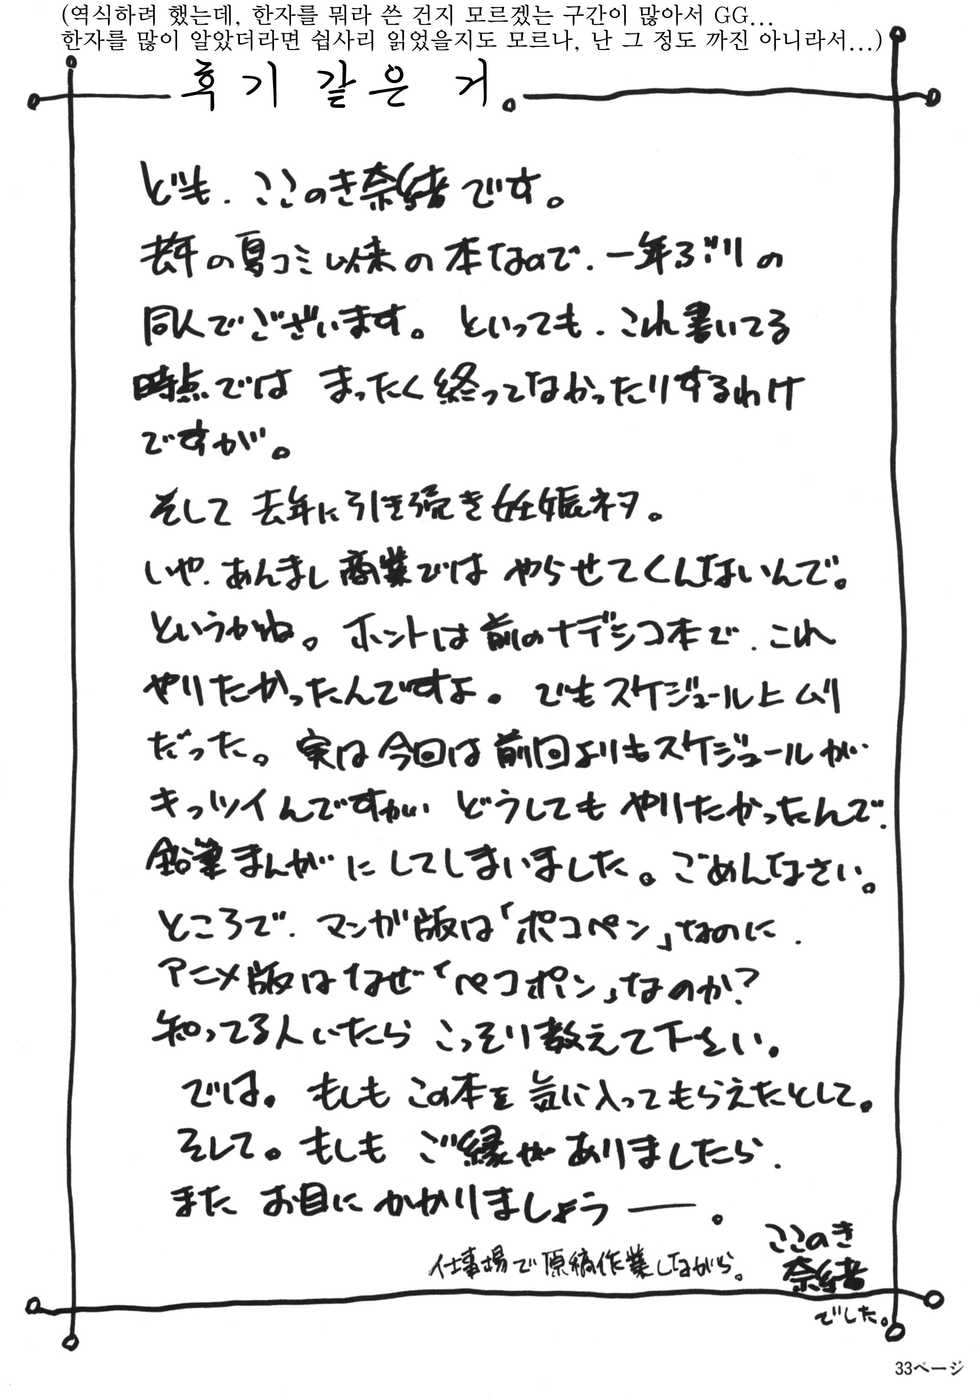 (역식하려 했는데, 한자를 뭐라 쓴 건지 모르겠는 구간이 많아서 GG...
한자를 많이 알았더라면 쉽사리 읽었을지도 모르나, 난 그 정도 까진 아니라서...)
후기 같은 거。
ども、ここのき奈緒です。
去年の夏コミ以来の本なので、一年ぶりの
同人でございます。といっても、これ書いてる
時点では まったく終ってなかったりするわけ
ですが。
そして去年に引き続き妊娠ネタ。
いや、あんまし商業では やらせてくんないんで。
というかね。ホントは前のナデシコ本で、これ
やりたかったんですよ。でもスケジュール上ムリ
だった。実は今回は前回よりもスケジュールが
キッツイんですがい どうしても やりたかったんで、
鉛筆まんがにしてしまいました。ごめんなさい。
ところで、マンガ版は「ポコペン」なのに、
アニメ版はなぜ「ペコポン」なのか?
知ってる人いたら こっそり教えて下さい。
では。もしもこの本を気に入ってもらえたとして。
そして。もしも ご縁がありましたら、
また お目にかかりましょうー。
仕事場で原稿作業しながら。
ここのき
奈緒
でした。
33ページ